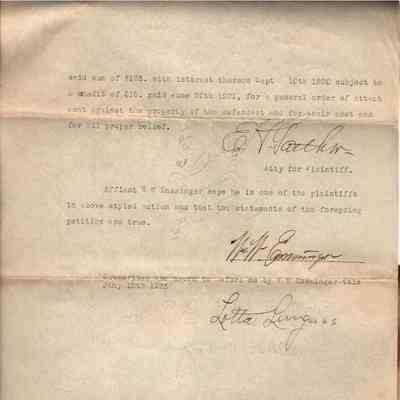 said sum of $125. with interest thereon Sept 10th 1920 subject to
a credit of $15. paid June 20th 1921, for a general order of attach
ment against the property of the defendant and for their cost and
for all proper relief.
Atty for Plaintiff.
Affiant W W Ensminger says he is one of the plaintiffs
in above styled action and that the statements of the foregoing
petition are true.
W.W. Ensminger
Subscribed and sworn to before me by W W Ensminger this
Jany 15th
Lotta